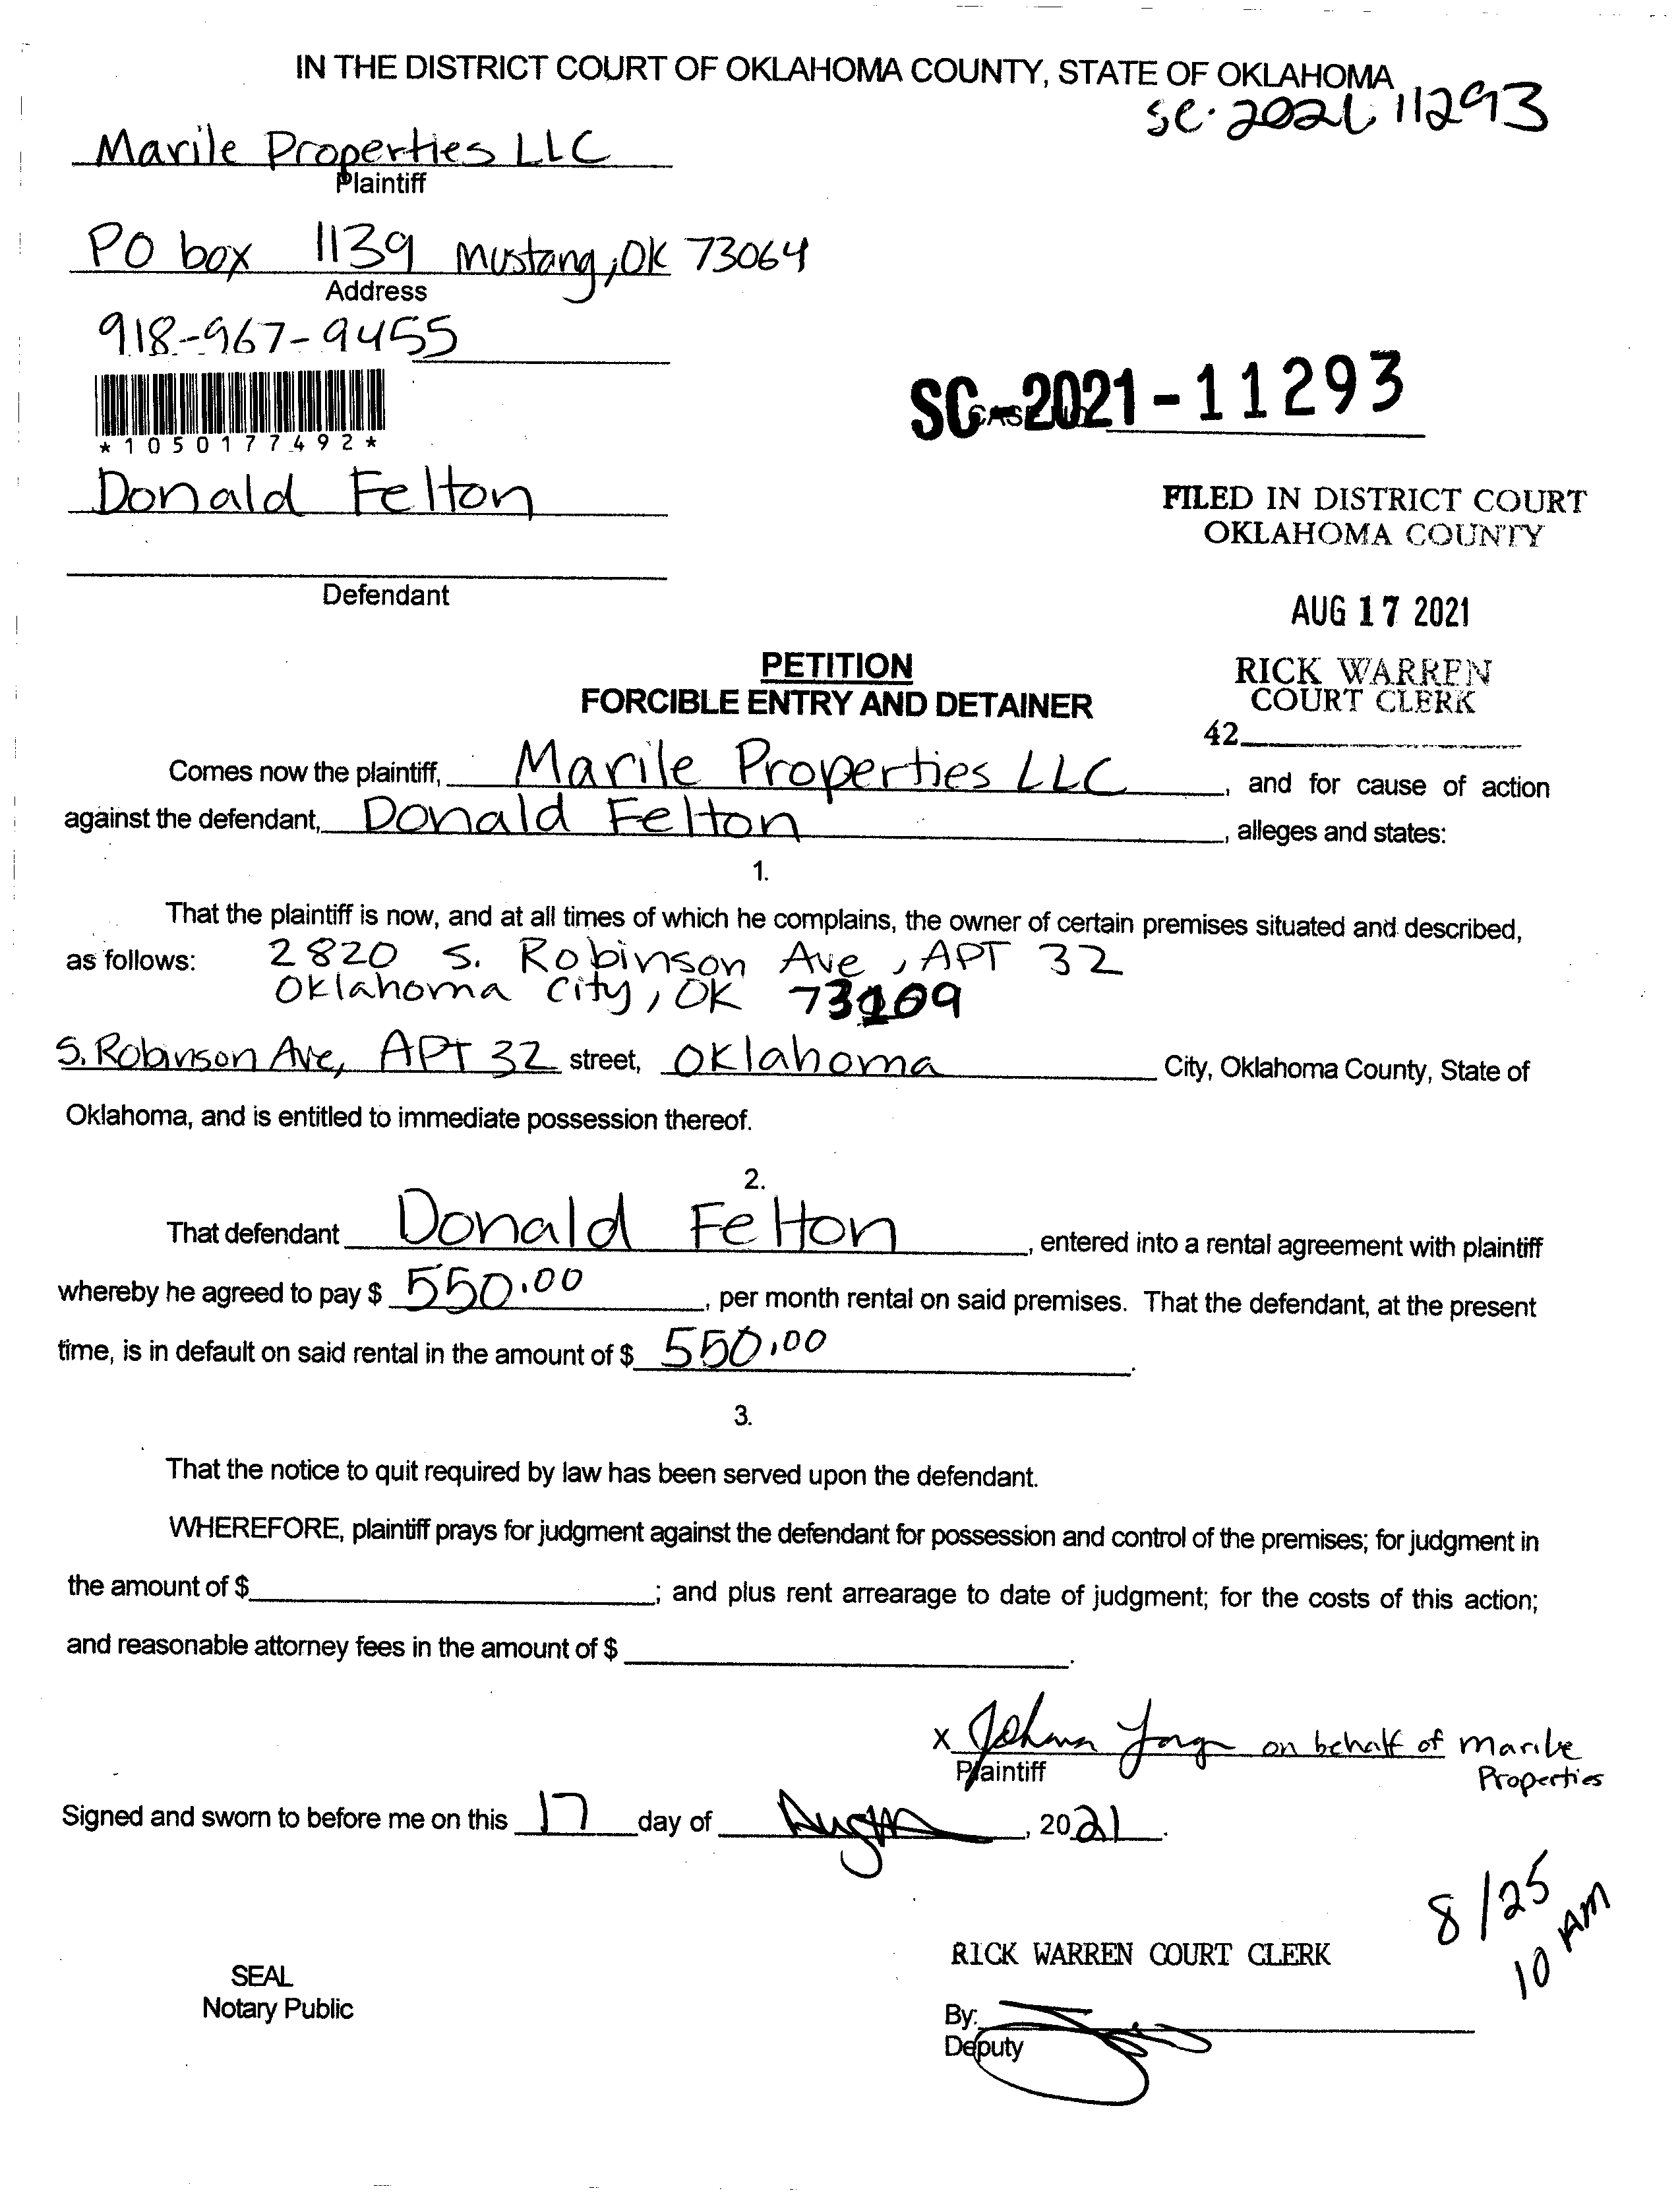 IN THE DISTRICT COURT OF OKLAHOMA COUNTY, STATE OF OKLAHOMA
SC-2021 11293
Marile Properties LLC
Plaintiff
PO box 1139 Mustang, OK 73064
Address
918-967-9455
SC-2021-11293
*1050177492*
Donald Felton
FILED IN DISTRICT COURT
OKLAHOMA COUNTY
Defendant
AUG 17 2021
PETITION
FORCIBLE ENTRY AND DETAINER
RICK WARREN
COURT CLERK
42
Comes now the plaintiff, Marile Properties LLC, and for cause of action
against the defendant, Donald Felton, alleges and states:
1.
That the plaintiff is now, and at all times of which he complains, the owner of certain premises situated and described,
as follows: 2820 S. Robinson Ave, APT 32
Oklahoma City, OK 73109
S. Robinson Ave, APT 32 street, Oklahoma City, Oklahoma County, State of
Oklahoma, and is entitled to immediate possession thereof.
2.
That defendant Donald Felton, entered into a rental agreement with plaintiff
whereby he agreed to pay $ 550.00, per month rental on said premises. That the defendant, at the present
time, is in default on said rental in the amount of $ 550.00.
3.
That the notice to quit required by law has been served upon the defendant.
WHEREFORE, plaintiff prays for judgment against the defendant for possession and control of the premises; for judgment in
the amount of $ ; and plus rent arrearage to date of judgment; for the costs of this action;
and reasonable attorney fees in the amount of $ .
X on behalf of Marile
Plaintiff
Properties
Signed and sworn to before me on this 17 day of August, 2021.
8/25
10 AM
RICK WARREN COURT CLERK
SEAL
Notary Public
By:
Deputy